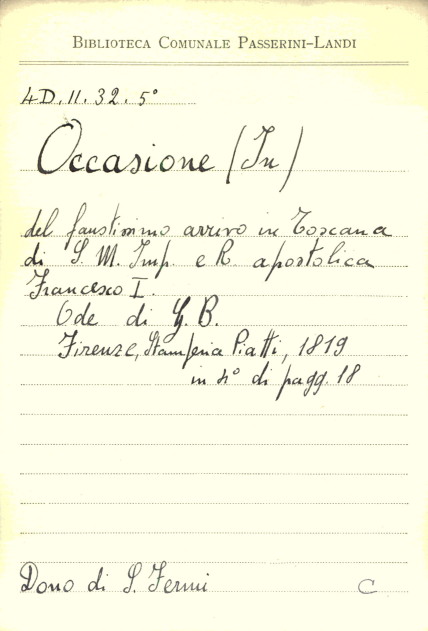 BIBLIOTECA COMUNALE PASSERINI-LANDI
4D.II.32.5°
Occasione (In)
del faustissimo arrivo in Toscana
di S. M. Imp. e R. apostolica
Francesco I.
Ode di G. B.
Firenze, Stamperia Piatti, 1819
in 4° di pagg. 18
Dono di S. Fermi
C